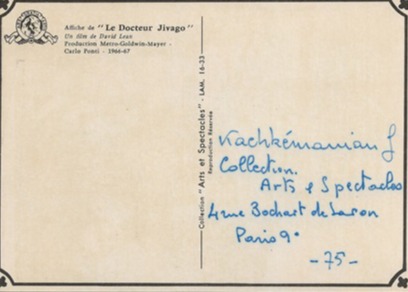 Affiche de "Le Docteur Jivago"
Un film de David Lean
Production Metro-Goldwin-Mayer -
Carlo Ponti - 1966-67
Collection "Arts et Spectacles" - LAM. 16-33
Reproduction Réservée
Kachkémanian J
Collection.
Arts & Spectacles
4 rue Bochart de Saron
Paris 9°
- 75 -